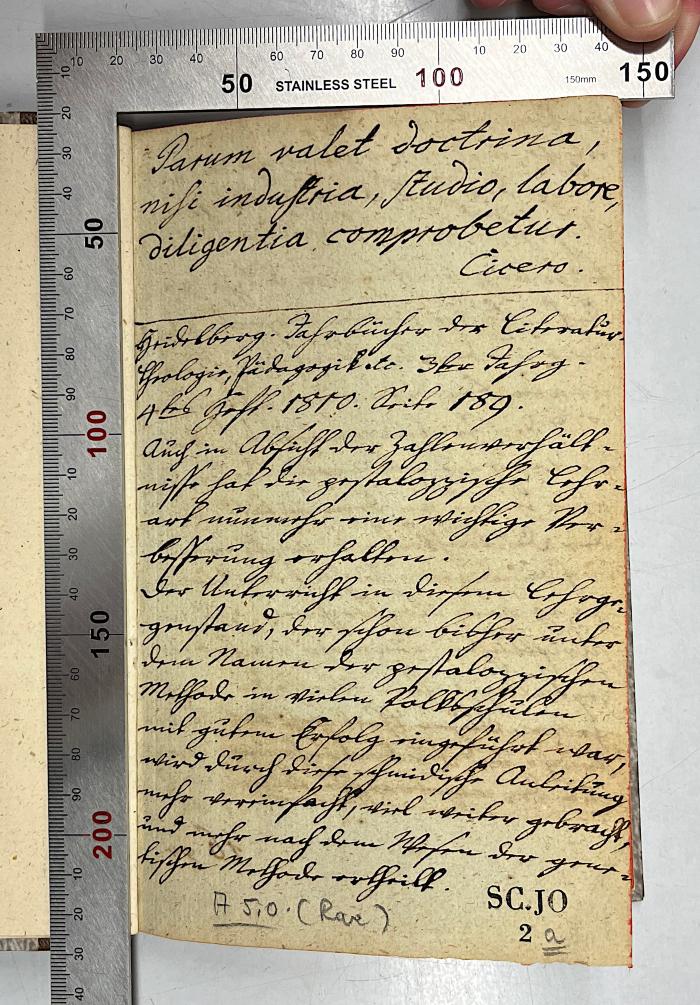 10 20 30 40 50 60 70 80 90 100 10 20 30 40 150
STAINLESS STEEL
150mm
10 20 30 40 50 60 70 80 90 100 10 20 30 40 150 60 70 80 90 200 10 20 30 40
Parum valet doctrina,
nisi industria, studio, labore,
diligentia comprobetur.
Cicero.
Heidelberg. Jahrbücher der Literatur.
Theologie, Pädagogik etc. 3ter Jahrg.
4tes Heft. 1810. Seite 189.
Auch in Absicht der Zahlenverhält-
nisse hat die pestalozzische Lehr-
art nunmehr eine wichtige Ver-
besserung erhalten.
Der Unterricht in diesem Lehrge-
genstand, der schon bisher unter
dem Namen der pestalozzischen
Methode in vielen Volksschulen
mit gutem Erfolg eingeführt war,
wird durch diese schmidische Anleitung
mehr vereinfacht, viel weiter gebracht,
und mehr nach dem Wesen der gene-
tischen Methode ertheilt.
A 5,0. (Rare)
SC.JO
2 a